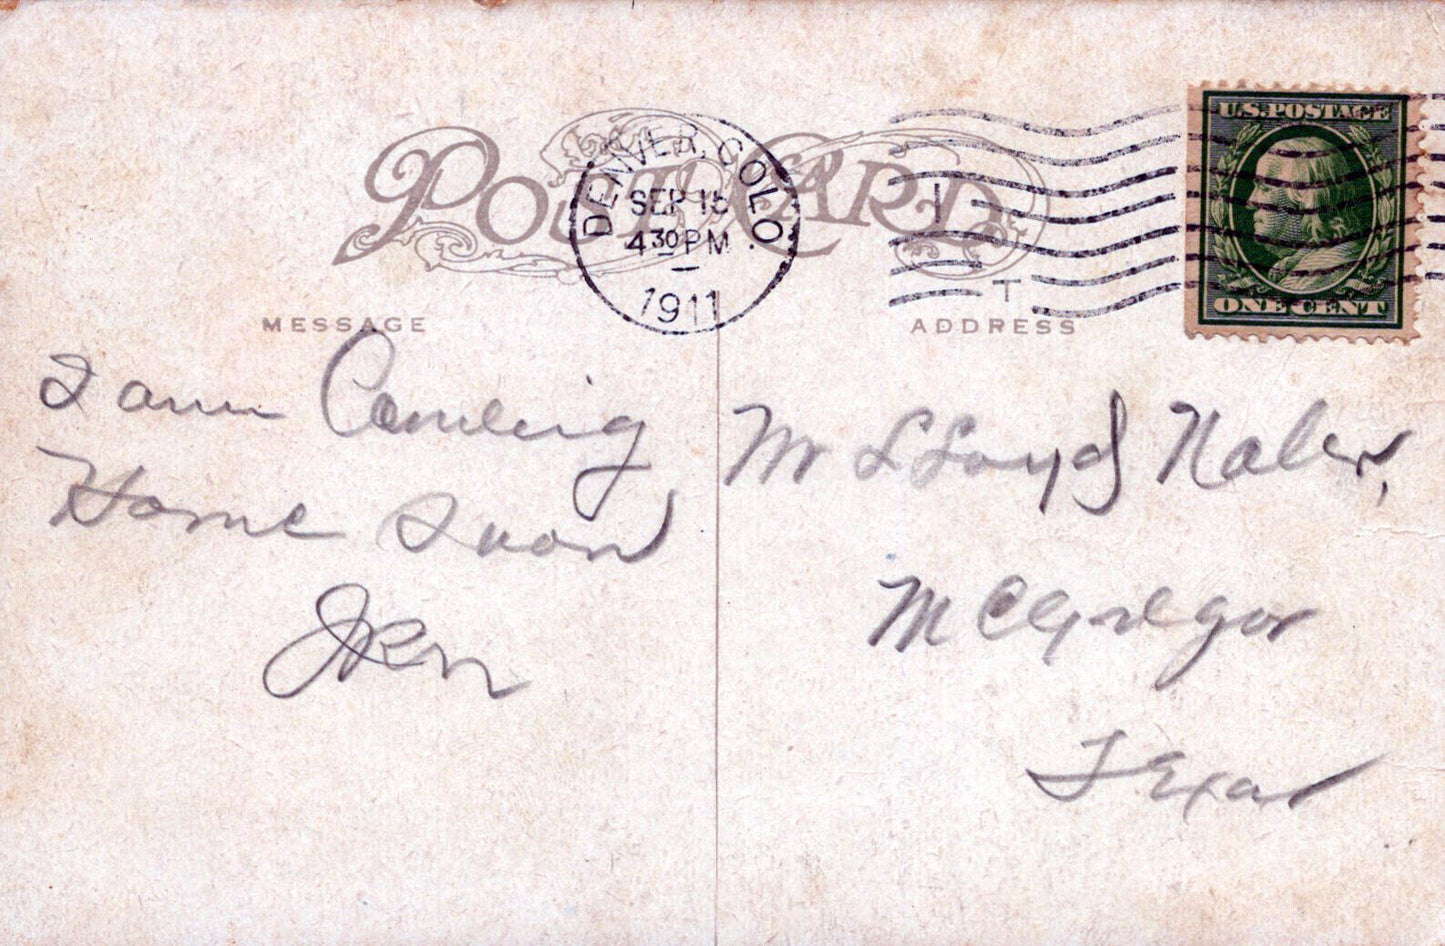 POST CARD
DENVER, COLO.
SEP 15
4 30 PM
1911
1
T
U.S. POSTAGE
ONE CENT
MESSAGE
ADDRESS
I am Comeing
Home Soon
JRN
Mr LLoyd Naler,
McGregor
Texas